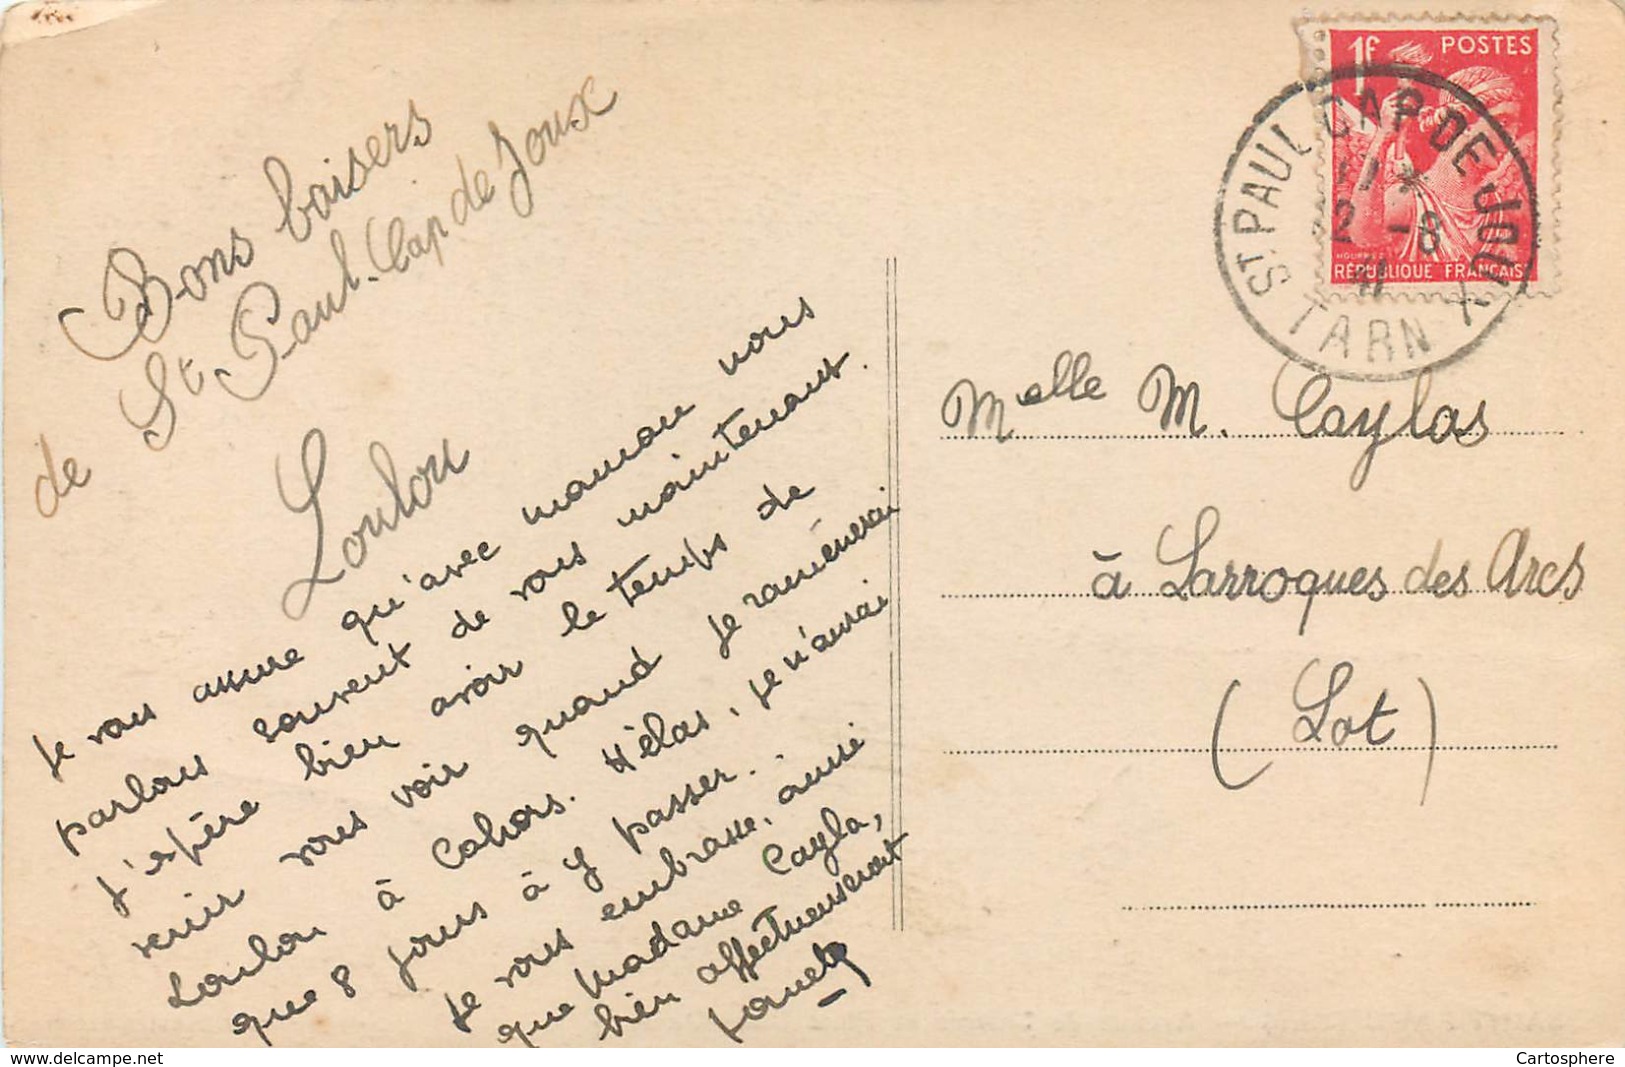 Bons baisers
de St Paul. Cap de Joux
Loulou
Je vous assure qu'avec maman nous
parlons souvent de vous maintenant.
J'espère bien avoir le temps de
venir vous voir quand je ramènerai
Loulou à Cahors. Hélas, je n'aurai
que 8 jours à y passer.
Je vous embrasse, aussi
que Madame Cayla,
bien affectueusement
1f POSTES
RÉPUBLIQUE FRANÇAISE
ST. PAUL CAP DE JOUX
2 -8
41
TARN
Melle M. Caylas
à Larroques des Arcs
(Lot)
www.delcampe.net
Cartosphere